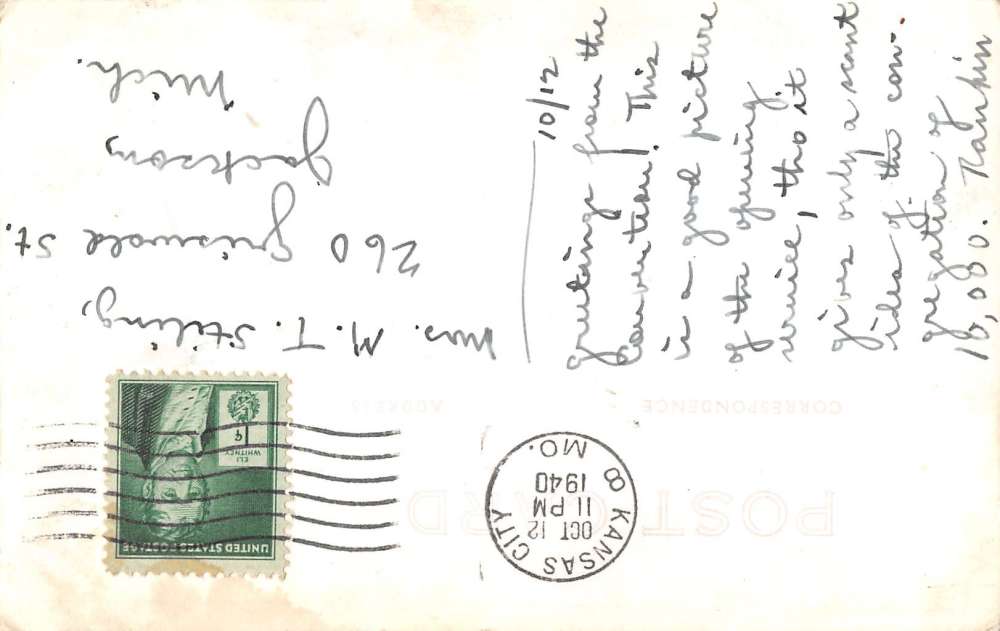 POST CARD
CORRESPONDENCE
ADDRESS
KANSAS CITY 8
MO.
OCT 12
11 PM
1940
UNITED STATES POSTAGE
1¢
ELI
WHITNEY
10/12
Greetings from the
Convention! This
is a good picture
of the opening
service, tho it
gives only a scant
idea of the con-
gregation of
16,080. Rankin
Mrs. M. T. Stiling,
260 Griswold St.
Jackson,
Mich.